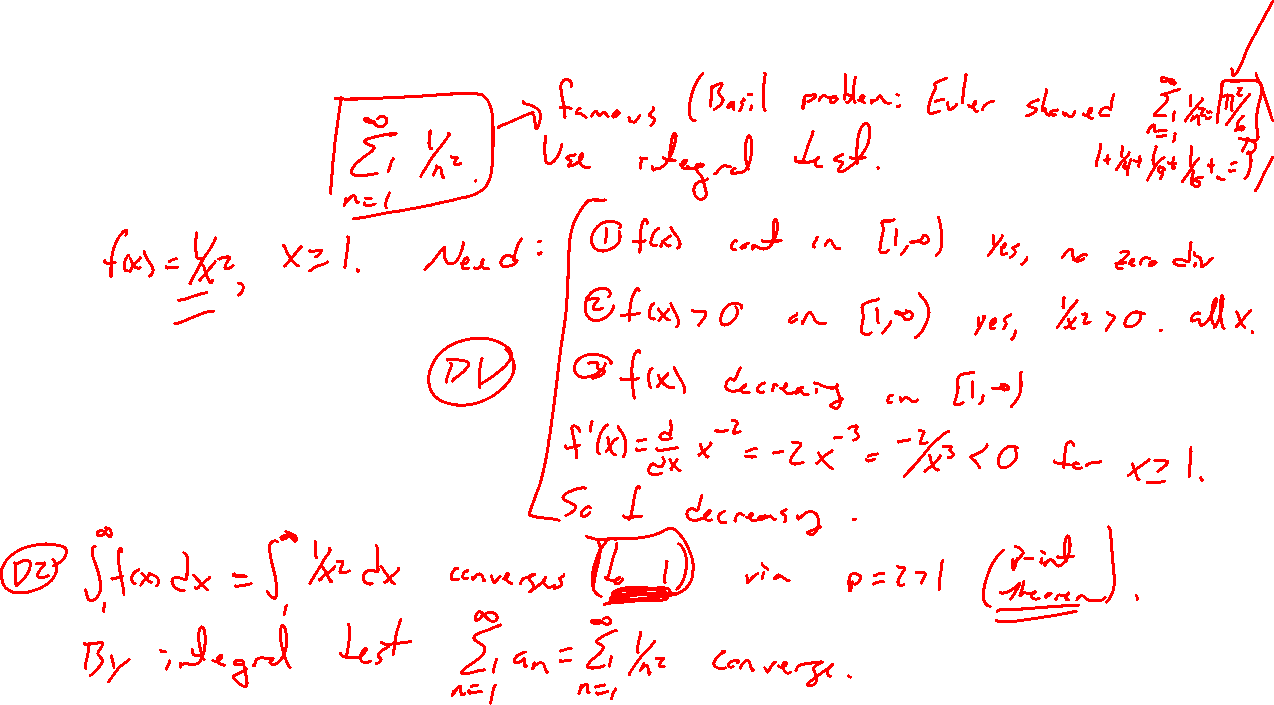 famous (Basil problem: Euler showed ∑_{n=1}^∞ 1/n² = π²/6)
∑_{n=1}^∞ 1/n². Use integral test. 1+1/4+1/9+1/16+...=
f(x) = 1/x², x ≥ 1. Need: ① f(x) cont on [1,∞) yes, no zero div
② f(x) > 0 on [1,∞) yes, 1/x² > 0. all x.
③ f(x) decreasing on [1,∞)
f'(x) = d/dx x^{-2} = -2x^{-3} = -2/x³ < 0 for x ≥ 1.
So f decreasing.
∫_1^∞ f(x) dx = ∫_1^∞ 1/x² dx converges (to 1) via p=2>1 (p-int theorem).
By integral test ∑_{n=1}^∞ a_n = ∑_{n=1}^∞ 1/n² converge.